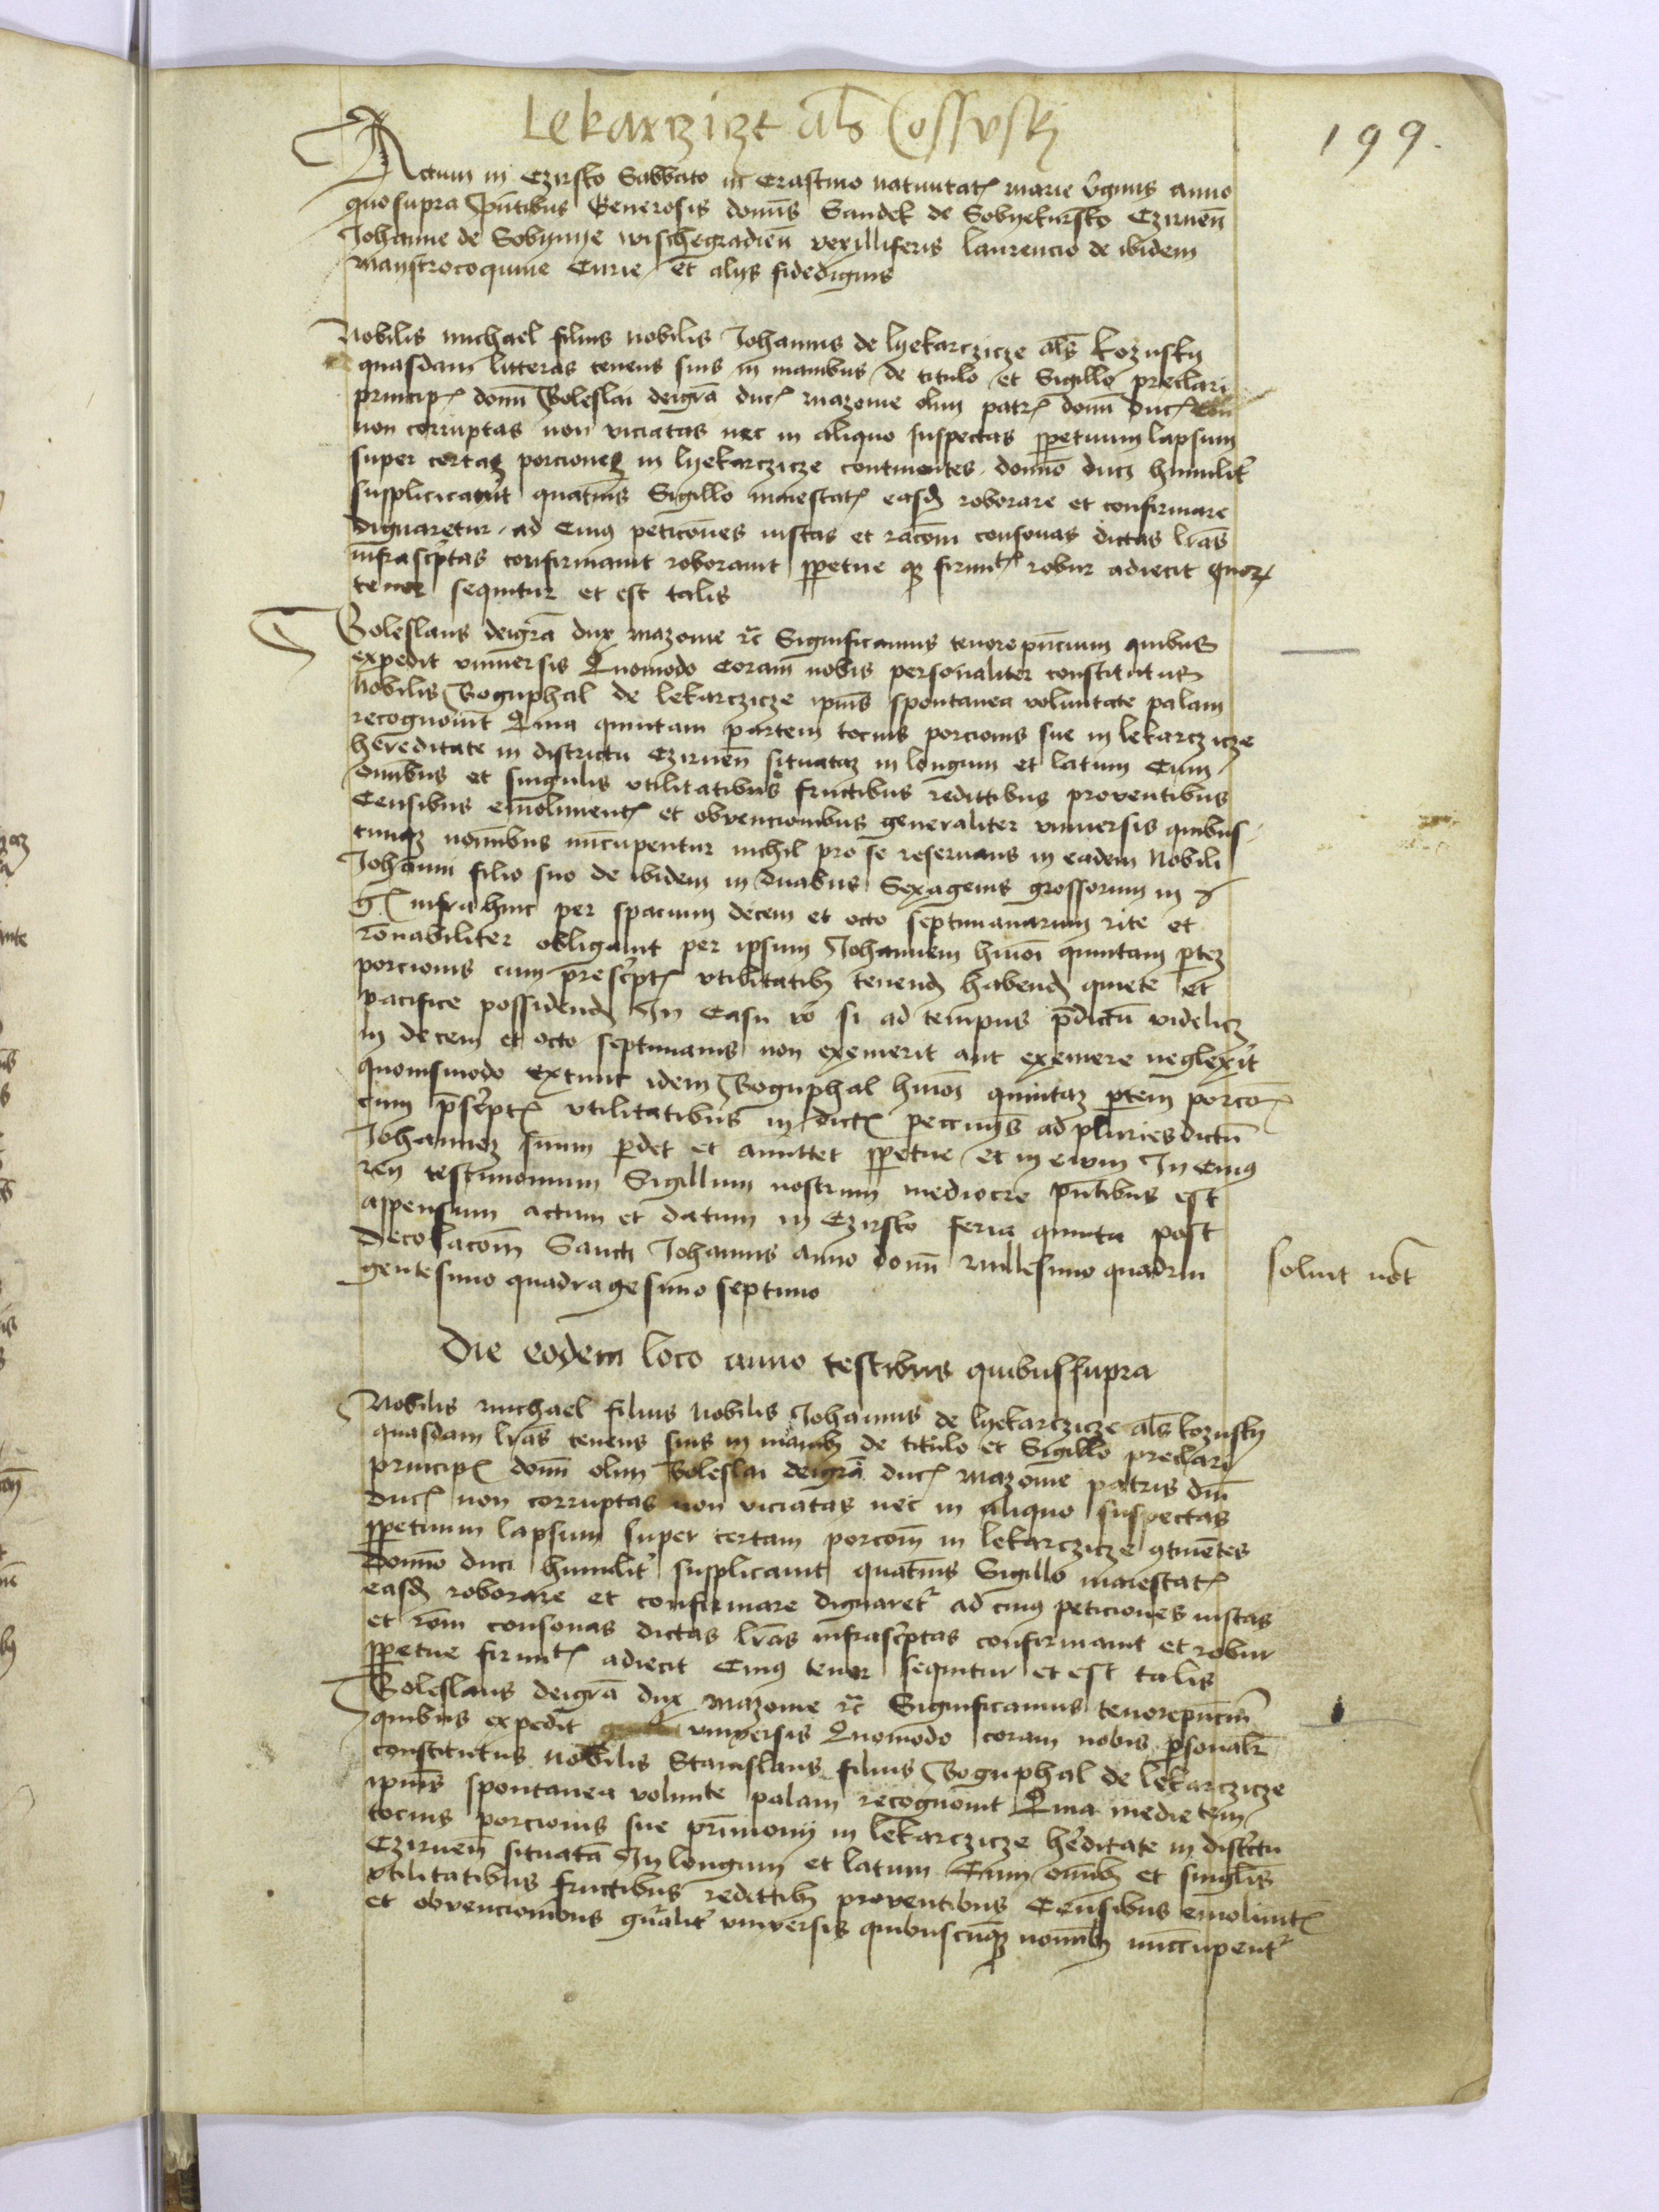 Lekarzicze als Cossvsky
199.
Actum in Czirsko Sabbato in Crastino natiuitatis marie v̄ginis anno
quo supra Pn̄tibus Generosis domīs Sandek de Sobyekursko Czirnen̄
Johanne de Sobynye wischegradien̄ vexilliferis laurencio de ibidem
magistrocoquine Curie et alys fidedignis
Nobilis michael filius nobilis Johannis de lyekarczicze als̄ kozusky
quasdam litteras tenens suis in manibus de titulo et Sigillo preclari
principis domī Boleslai deigrā ducis mazouie olim patris domī ducis
non corruptas non viciatas nec in aliquo suspectas ppetuum lapsum
super certas porciones in lyekarczicze continentes domīo duci humilit̄
supplicicauit quatīus Sigillo maiestatis easdem roborare et confirmare
dignaretur ad Cuius peticōnes iustas et racōni consonas dictas lrās
infrascrptas confirmauit roborauit ppetue qz firmitatis robur adiecit quorum
tenor sequitur et est talis
Boleslaus deigrā dux mazouie rc̄ Significamus tenore pn̄cium quibus
expedit vniuersis Quomodo Coram nobis personaliter constitutus
Nobilis Boguphal de lekarczicze ip̄ius spontanea voluntate palam
recognouit Quia quintam partem tocius porcionis sue in lekarczicze
hereditate in districtu Czirnen̄ situataz in longum et latum Cum
omībus et singulis vtilitatibus fructibus redittibus proventibus
Censibus emolimentis et obvencionibus generaliter vniuersis quibus
cunqz nomībus nūcupentur nichil pro se reseruans in eadem Nobili
Johanni filio suo de ibidem in duabus Sexagenis grossorum in
infra hinc per spacium decem et octo septimanarum rite et
rōnabiliter obligauit per ipsum Johannem hmōi quintam ptez
porcionis cum prescrptis vtilitatibz tenendam habendam quiete et
pacifice possidendam In Casu vō si ad tempus p̄dictū videlicz
in decem et octo septimanis non exemerit aut exemere neglexit
quouismodo extunc idem Boguphal hmōi quintaz ptem porcōis
cum p̄scrptis vtilitatibus in dictis peccunijs ad pluries dictū
Johannez suum pdet et amittet ppetue et in ewum In Cuius
rei testimonium Sigillum nostrum mediocre pn̄tibus est
appensum actum et datum in Czirsko feria quinta post
Decollacōm Sancti Johannis anno domī Millesimo quadrin
gentesimo quadragesimo septimo
soluit not̄
Die eodem loco anno testibus quibussupra
Nobilis michael filius Nobilis Johannis de lyekarczicze als̄ kozusky
quasdam lrās tenens suis in manibz de titulo et Sigillo preclari
principis domī olim Boleslai deigrā ducis mazouie patris dm̄i
ducis non corruptas non viciatas nec in aliquo suspectas
ppetuum lapsum super certam porcōm in lekarczicze gtinētes
Domīo duci humilit̄ supplicauit quatīus Sigillo maiestatis
easdem roborare et confirmare dignaret̄ ad cuius peticiones iustas
et rōni consonas dictas lrās infrascrptas confirmauit et robur
ppetue firmitatis adiecit Cuius tenor sequitur et est talis
Boleslaus deigrā dux mazouie rc̄ Significamus tenore pn̄cium
quibus expedit vniuersis Quomodo coram nobis psonalr̄
constitutus nobilis Stanislaus filius Boguphal de lekarczicze
ip̄ius spontanea volunte palam recognouit Quia medietem
tocius porcionis sue prīmonij in lekarczicze hēditate in distrctu
Czirnen̄ situatā In longum et latum Cum omībz et singlīs
vtilitatibus fructibus redittibz proventibus Censibus emolimtis
et obvencionibus gn̄alit̄ vniversis quibuscūqz nomībz nūccupent̄